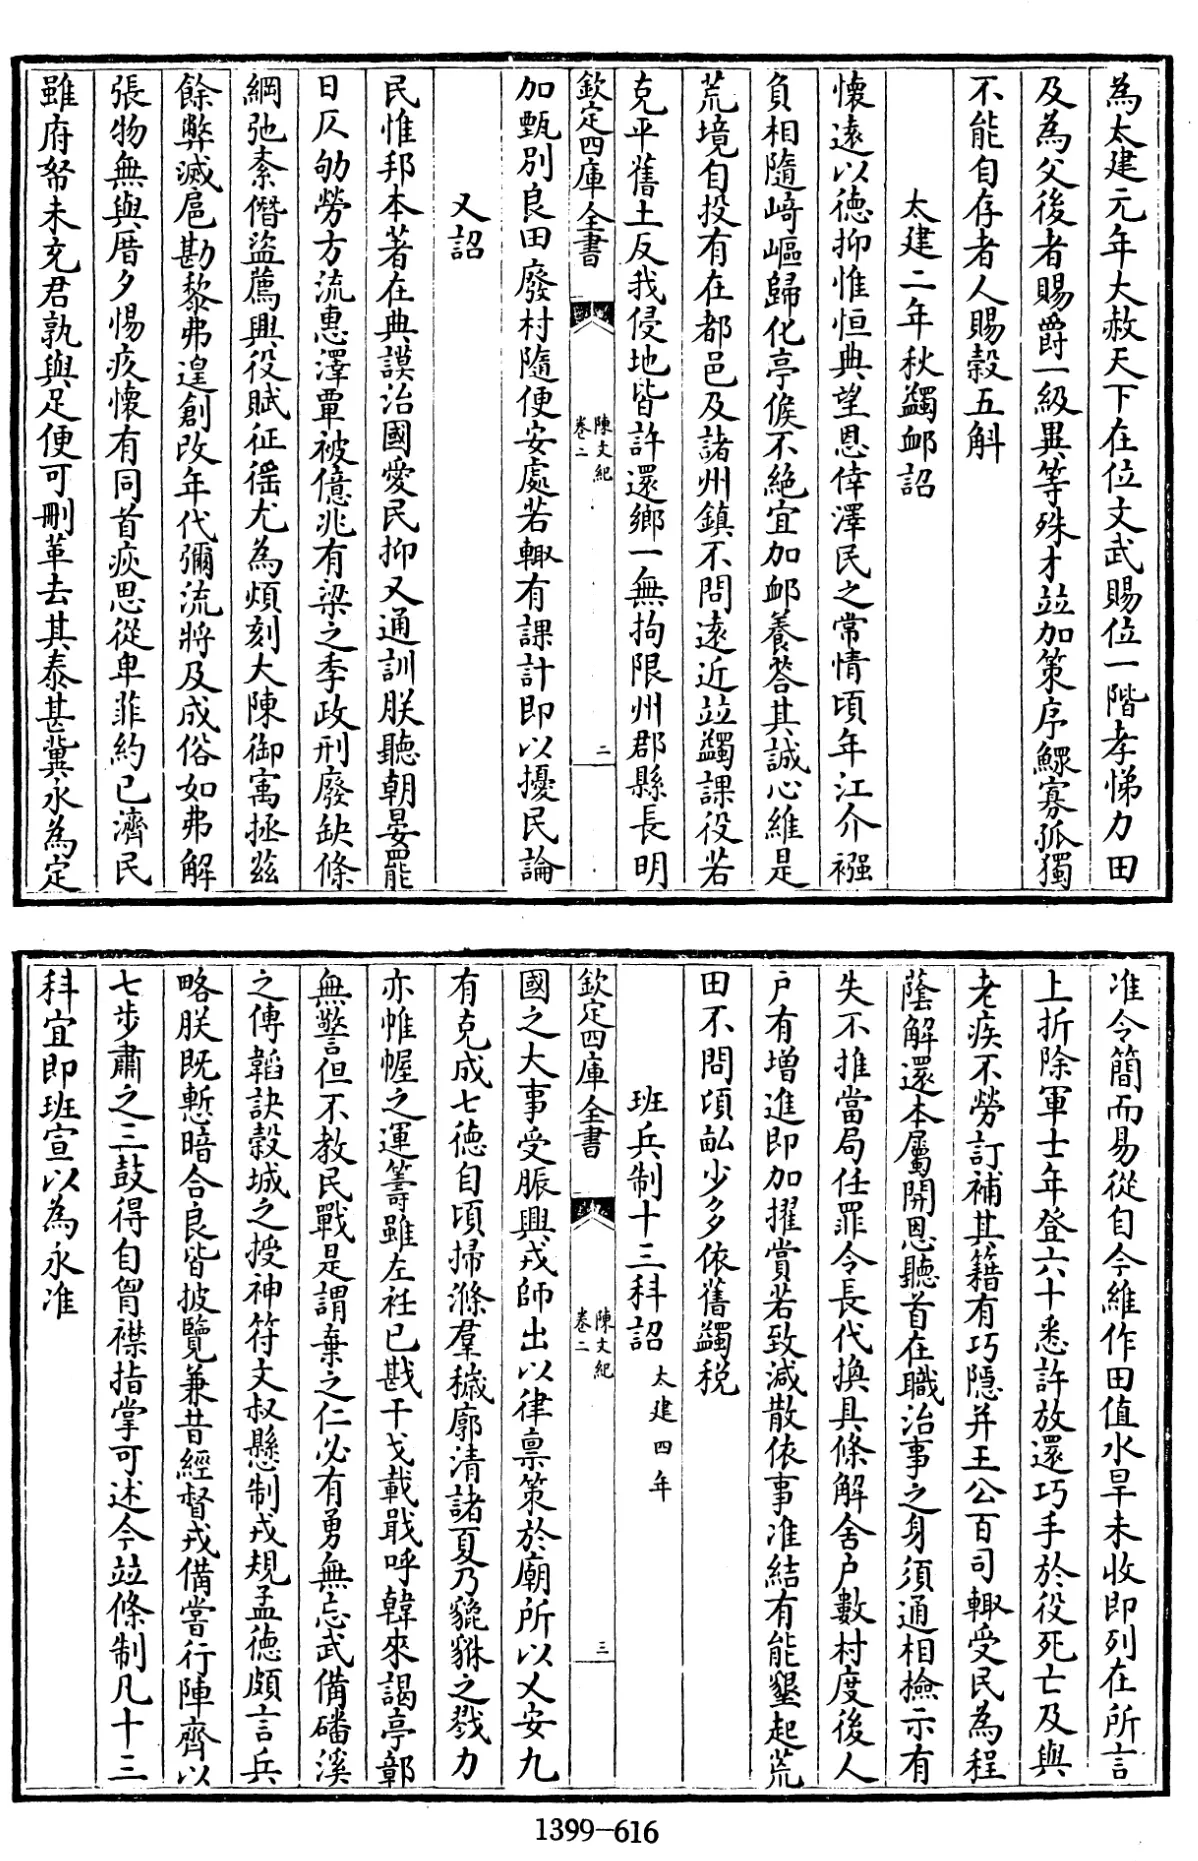 為太建元年大赦天下在位文武賜位一階孝悌力田
及為父後者賜爵一級異等殊才竝加策序鰥寡孤獨
不能自存者人賜榖五斛
太建二年秋蠲䘏詔
懐遠以徳抑惟恒典望恩倖澤民之常情頃年江介襁
負相隨崎嶇歸化亭候不絶宜加䘏養答其誠心維是
荒境自投有在都邑及諸州鎮不問遠近竝蠲課役若
克平舊土反我侵地皆許還鄉一無拘限州郡縣長明
欽定四庫全書
陳文紀
卷二
二
加甄別良田廢村隨便安處若輙有課計即以擾民論
又詔
民惟邦本著在典謨治國愛民抑又通訓朕聽朝晏罷
日仄劬勞方流惠澤覃被億兆有梁之季政刑廢缺條
綱弛紊僭盜薦興役賦征徭尤為煩刻大陳御寓拯兹
餘弊滅扈勘黎弗遑創改年代彌流將及成俗如弗解
張物無與厝夕惕疚懐有同首疾思從卑菲約已濟民
雖府帑未充君孰與足便可刪革去其泰甚冀永為定
准令簡而易從自今維作田值水旱未收即列在所言
上折除軍士年登六十悉許放還巧手於役死亡及與
老疾不勞訂補其籍有巧隱并王公百司輙受民為程
蔭解還本屬開恩聽首在職治事之身須通相檢示有
失不推當局任罪令長代換具條解舍户數村度後人
户有增進即加擢賞若致減散依事准結有能墾起荒
田不問頃畝少多依舊蠲税
班兵制十三科詔 太建四年
欽定四庫全書
陳文紀
卷二
三
國之大事受脤興戎師出以律禀策於廟所以乂安九
有克成七徳自頃掃滌羣穢廓清諸夏乃貔貅之戮力
亦帷幄之運籌雖左衽已戡干戈載戢呼韓來謁亭鄣
無警但不教民戰是謂棄之仁必有勇無忘武備磻溪
之傳韜訣榖城之授神符文叔懸制戎規孟徳頗言兵
略朕既慙暗合良皆披覽兼昔經督戎備嘗行陣齊以
七步肅之三鼓得自胷襟指掌可述今竝條制凡十三
科宜即班宣以為永准
1399-616